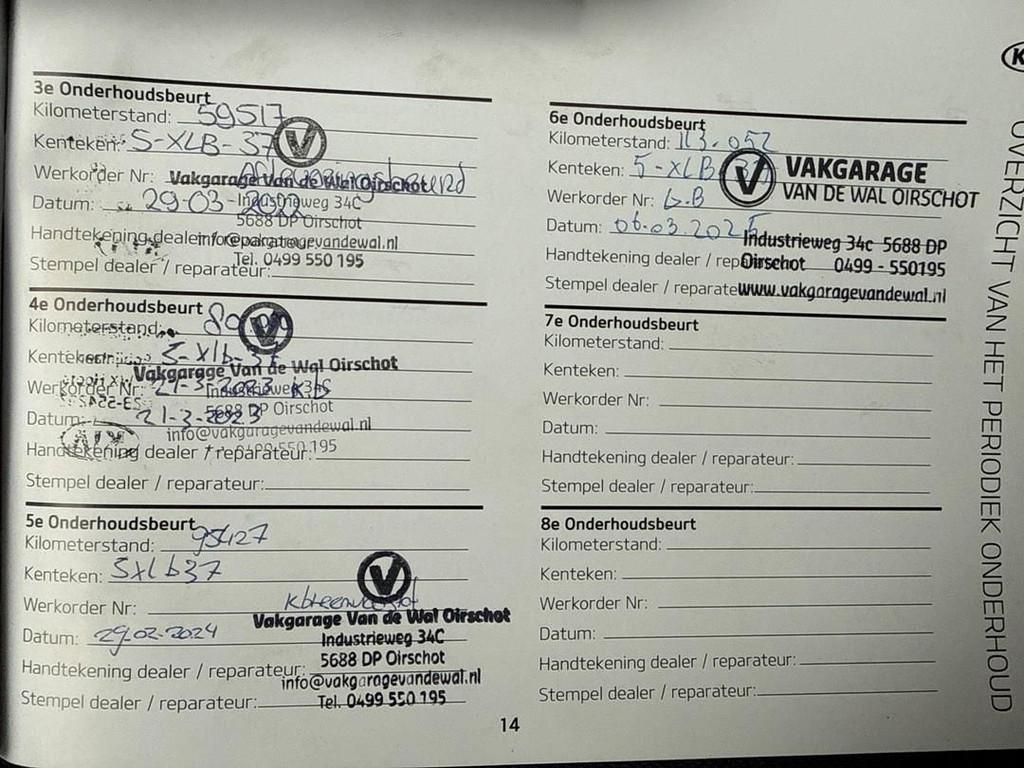 3e Onderhoudsbeurt
Kilometerstand: 59517
Kenteken: 5-XLB-37
Werkorder Nr:
Vakgarage Van de Wal Oirschot
Datum: 29-03-
Industrieweg 34C
5688 DP Oirschot
Handtekening dealer / reparateur:
info@vakgaragevandewal.nl
Tel. 0499 550 195
Stempel dealer / reparateur:
4e Onderhoudsbeurt
Kilometerstand:
Kenteken: 5-Xlb-37
Vakgarage Van de Wal Oirschot
Werkorder Nr: 21-3-2023 KB
Industrieweg 34C
Datum: 21-3-2023
5688 DP Oirschot
info@vakgaragevandewal.nl
Handtekening dealer / reparateur:
0499 550 195
Stempel dealer / reparateur:
5e Onderhoudsbeurt
Kilometerstand: 95427
Kenteken: 5xlb37
Werkorder Nr:
Vakgarage Van de Wal Oirschot
Datum: 29.02.2024
Industrieweg 34C
5688 DP Oirschot
Handtekening dealer / reparateur:
info@vakgaragevandewal.nl
Stempel dealer / reparateur:
Tel. 0499 550 195
6e Onderhoudsbeurt
Kilometerstand: 113.052
Kenteken: 5-XLB-37
VAKGARAGE
VAN DE WAL OIRSCHOT
Werkorder Nr: G.B
Datum: 06.03.2025
Industrieweg 34c 5688 DP
Handtekening dealer / reparateur:
Oirschot 0499 - 550195
Stempel dealer / reparateur:
www.vakgaragevandewal.nl
7e Onderhoudsbeurt
Kilometerstand:
Kenteken:
Werkorder Nr:
Datum:
Handtekening dealer / reparateur:
Stempel dealer / reparateur:
8e Onderhoudsbeurt
Kilometerstand:
Kenteken:
Werkorder Nr:
Datum:
Handtekening dealer / reparateur:
Stempel dealer / reparateur:
14
OVERZICHT VAN HET PERIODIEK ONDERHOUD